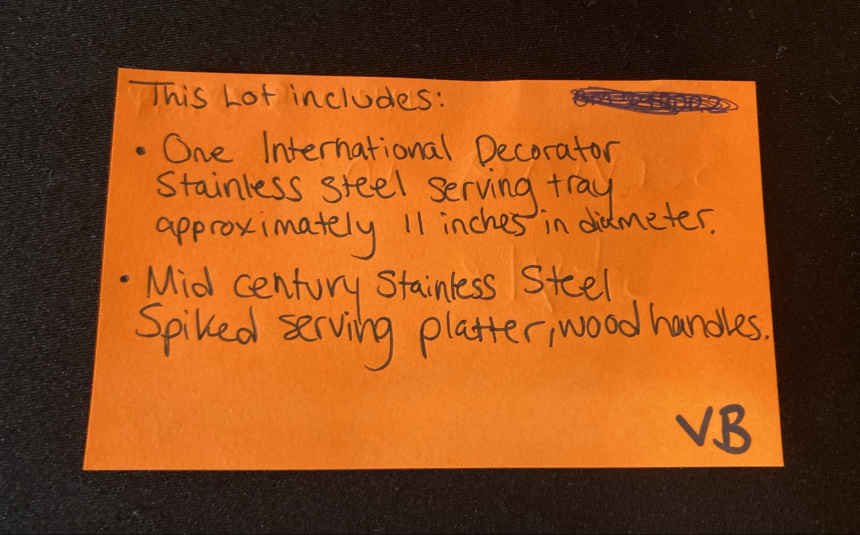 This Lot includes:
• One International Decorator
Stainless steel serving tray
approximately 11 inches in diameter.
• Mid century Stainless Steel
Spiked serving platter, wood handles.
VB